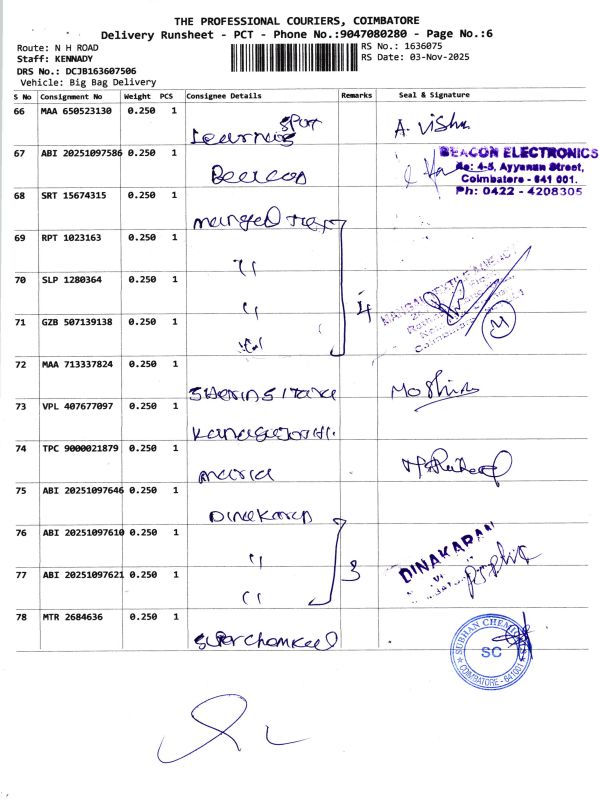 THE PROFESSIONAL COURIERS, COIMBATORE
Delivery Runsheet - PCT - Phone No.:9047080280 - Page No.:6
Route: N H ROAD
RS No.: 1636075
Staff: KENNADY
RS Date: 03-Nov-2025
DRS No.: DCJB163607506
Vehicle: Big Bag Delivery
S No Consignment No Weight PCS Consignee Details Remarks Seal & Signature
66 MAA 650523130 0.250 1 A. Vishu
spot
Learning
67 ABI 20251097586 0.250 1
BEACON ELECTRONICS
No: 4-5, Ayyanan Street,
Coimbatore - 641 001.
Ph: 0422 - 4208305
Beacon
68 SRT 15674315 0.250 1
69 RPT 1023163 0.250 1
〃
70 SLP 1280364 0.250 1
〃 4
71 GZB 507139138 0.250 1 M
72 MAA 713337824 0.250 1
73 VPL 407677097 0.250 1
74 TPC 9000021879 0.250 1
maria
75 ABI 20251097646 0.250 1
Dinakaran
76 ABI 20251097610 0.250 1
〃 3
DINAKARAN
77 ABI 20251097621 0.250 1
〃
78 MTR 2684636 0.250 1
SUBHAN CHEMICALS
SC
COIMBATORE - 641001